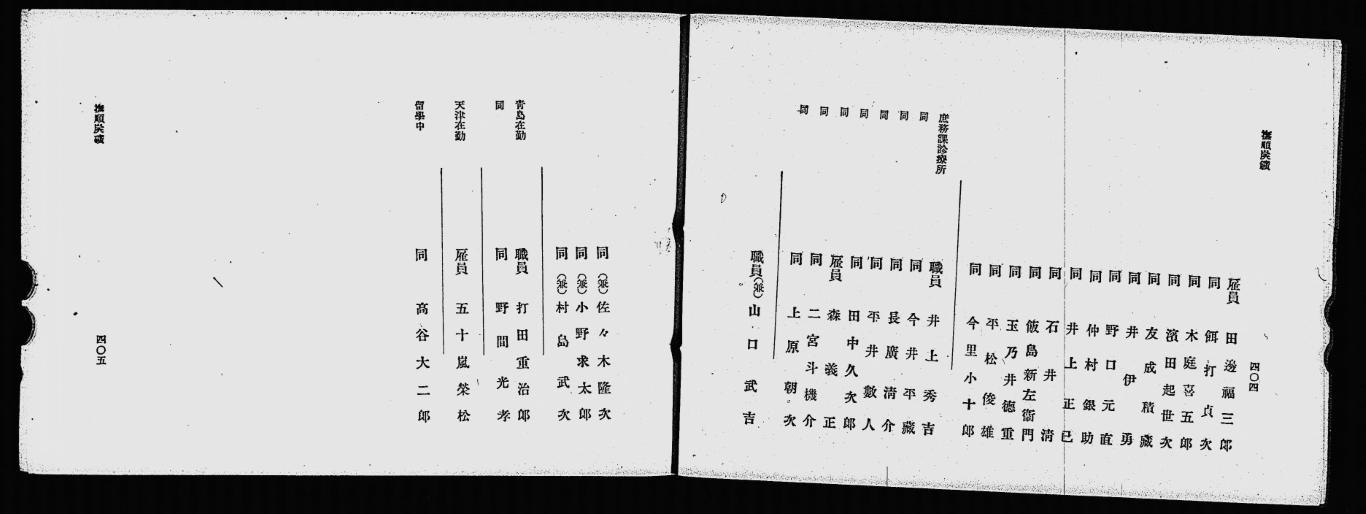 撫順炭礦
四〇四
雇員 田邊福三郎
同 餌打貞次
同 木庭喜五郎
同 濱田起世次
同 友成積藏
同 井伊勇
同 野口元直
同 仲村銀助
同 井上正巳
同 石井清
同 飯島新左衞門
同 玉乃井德重
同 平松俊雄
同 今里小十郎
庶務課診療所 職員 井上秀吉
同 同 今井平藏
同 同 長廣清介
同 同 平井數人
同 同 田中久次郎
同 雇員 森義正
同 同 二宮斗機介
同 同 上原朝次
職員(兼) 山口武吉
同(兼) 佐々木隆次
同(兼) 小野求太郎
同(兼) 村島武次
青島在勤 職員 打田重治郎
同 同 野間光孝
天津在勤 雇員 五十嵐榮松
留學中 同 高谷大二郎
撫順炭礦
四〇五